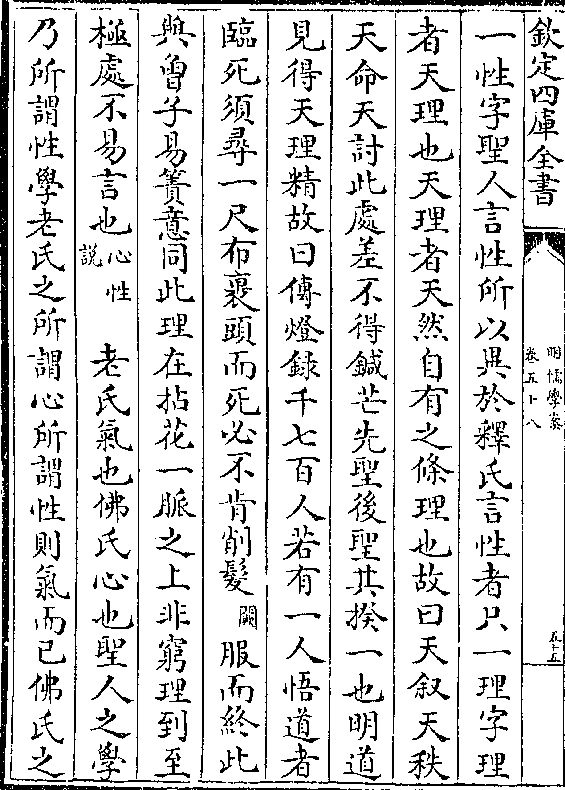 欽定四庫全書
明儒學案
卷五十八
五十五
一性字聖人言性所以異於釋氏言性者只一理字理
者天理也天理者天然自有之條理也故曰天叙天秩
天命天討此處差不得鍼芒先聖後聖其揆一也明道
見得天理精故曰傳燈錄千七百人若有一人悟道者
臨死須尋一尺布裹頭而死必不肯削髮闕服而終此
與曾子易簀意同此理在拈花一脈之上非窮理到至
極處不易言也心性説 老氏氣也佛氏心也聖人之學
乃所謂性學老氏之所謂心所謂性則氣而已佛氏之